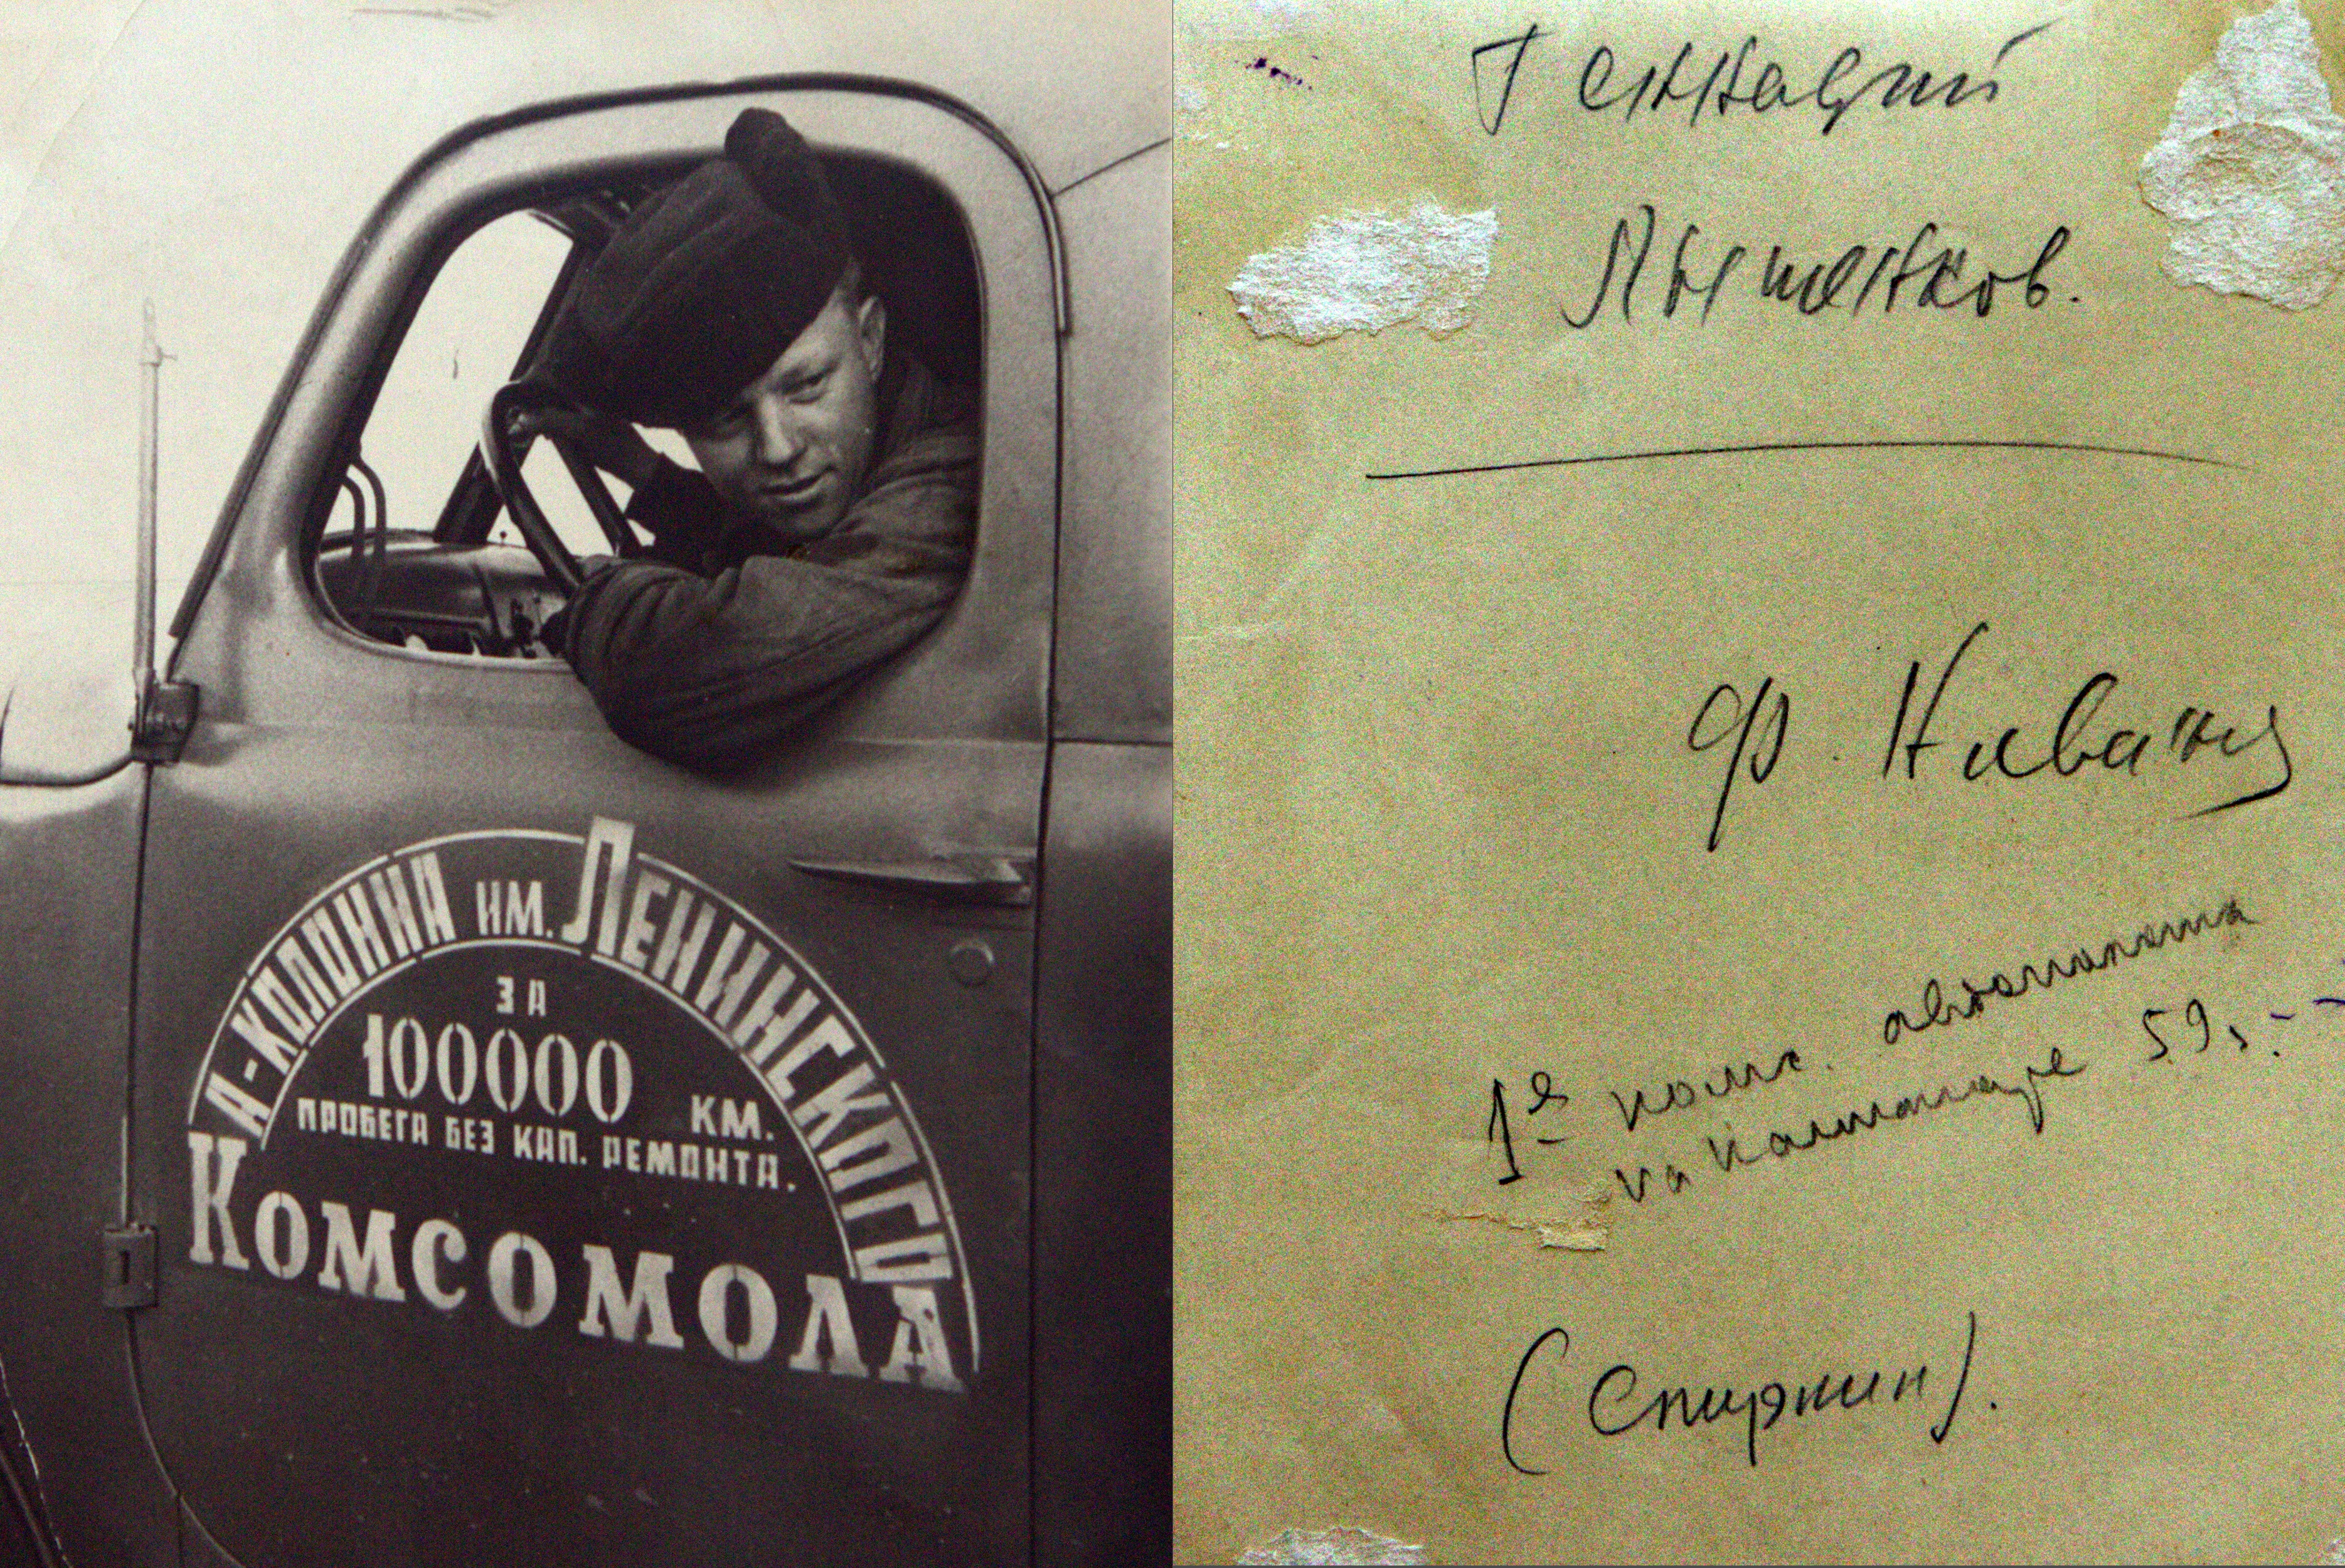 А-КОЛОННА ИМ. ЛЕНИНСКОГО
ЗА
100000 КМ.
ПРОБЕГА БЕЗ КАП. РЕМОНТА.
КОМСОМОЛА
Геннадий
Пышенков.
Ф.
1е комс.
на 59
(Спиркин).